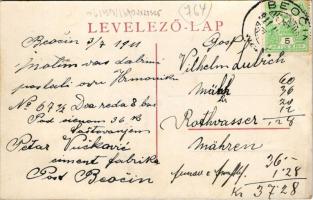 (764)
LEVELEZŐ-LAP
BEOCSIN
5
Beočin 3/7 1911
Molim vas dalmi
poslati ovu Harmoniku
No 67 3/4 Dva reda 8 bas
Pod cienom 36 K
Saštovanjem
Petar Vučković
ciment fabrika
Post Beočin
Gosp.
Vilhelm Lubich
Rothwasser
Mähren
60
36
20
12
1.28
36.-
1.28
Kr 37.28